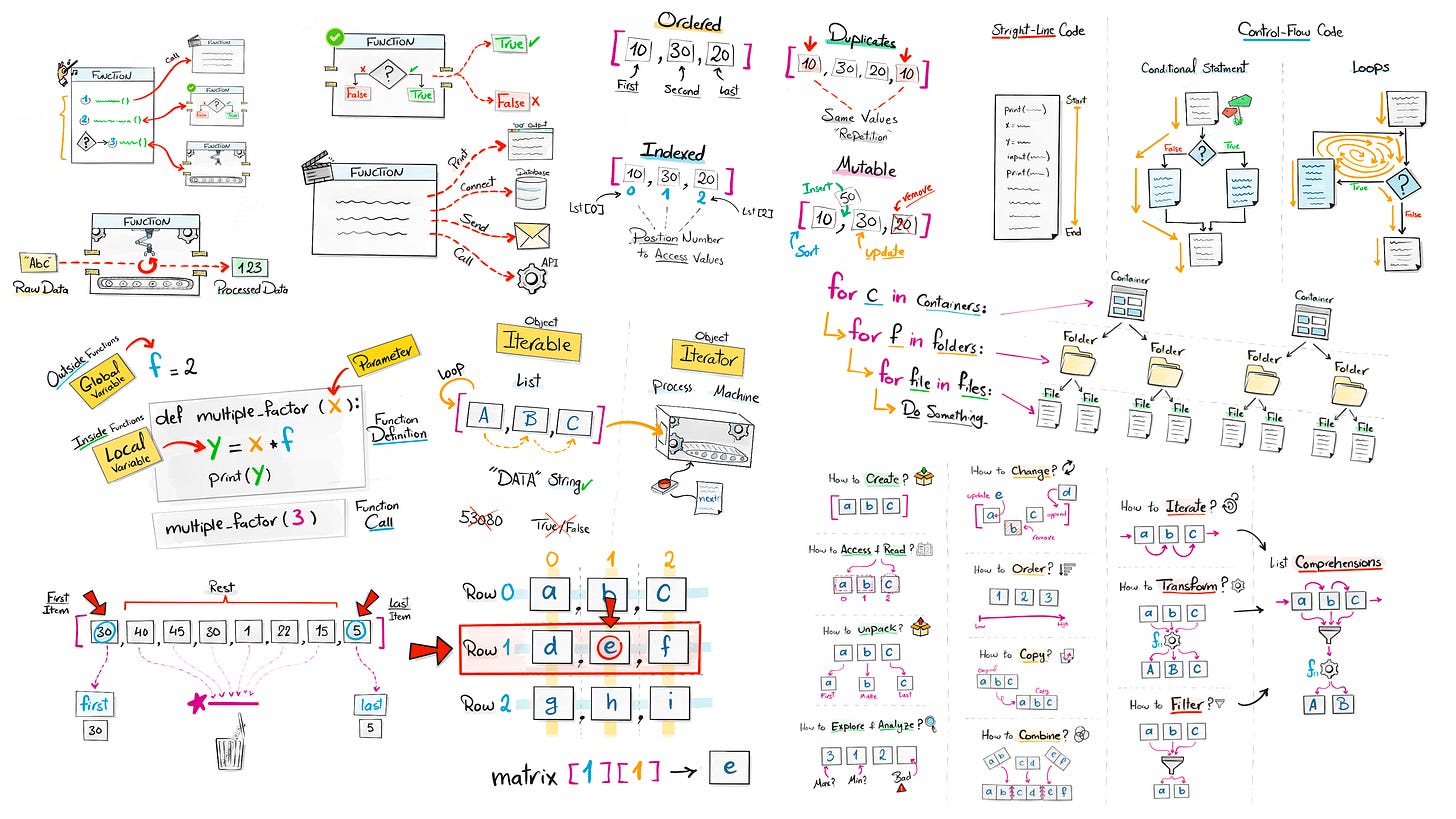 FUNCTION
Call
FUNCTION
1
2
? → 3
FUNCTION
?
False
True
FUNCTION
FUNCTION
"Abc"
123
Raw Data
Processed Data
FUNCTION
?
x
✓
False
True
True ✓
False X
FUNCTION
Print
Connect
Send
Call
Output
Database
API
Ordered
[10, 30, 20]
First
Second
Last
Indexed
[10, 30, 20]
0 1 2
Lst[0]
Lst[2]
Position Number
to Access Values
Duplicates
[10, 30, 20, 10]
Same Values
"Repetition"
Mutable
Insert
50
remove
[10, 30, 20]
Sort
update
Stright-Line Code
print(
x =
y =
input(
print(
Start
End
Control-Flow Code
Conditional Statment
False
True
?
Loops
True
?
False
Outside Functions
Global
Variable
f = 2
Parameter
Inside Functions
Local
Variable
def multiple_factor (x):
y = x * f
print(y)
Function
Definition
multiple_factor (3)
Function
Call
Object
Iterable
Loop
List
[A, B, C]
"DATA" String ✓
53080
True/False
Object
Iterator
Process Machine
next()
for c in containers:
for f in folders:
for file in files:
Do Something
Container
Container
Folder
Folder
Folder
Folder
File File File File File File File File
First
Item
Rest
Last
Item
[30, 40, 45, 30, 1, 22, 15, 5]
first
30
last
5
0 1 2
Row 0 a, b, c
Row 1 d, e, f
Row 2 g, h, i
matrix [1][1] → e
How to Create?
[a b c]
How to Access & Read?
a b c
0 1 2
How to unpack?
a b c
a b c
First Middle Last
How to Explore & Analyze?
3 1 2
Max? Min? Bad
How to Change?
update e
d
[a c append]
b
remove
How to Order?
1 2 3
Low High
How to Copy?
Original
a b c
Copy
a b c
How to Combine?
a b c d e f
a b c d e f
How to Iterate?
a b c
How to Transform?
a b c
fn
A B C
How to Filter?
a b c
a b
List Comprehensions
a b c
fn
A B